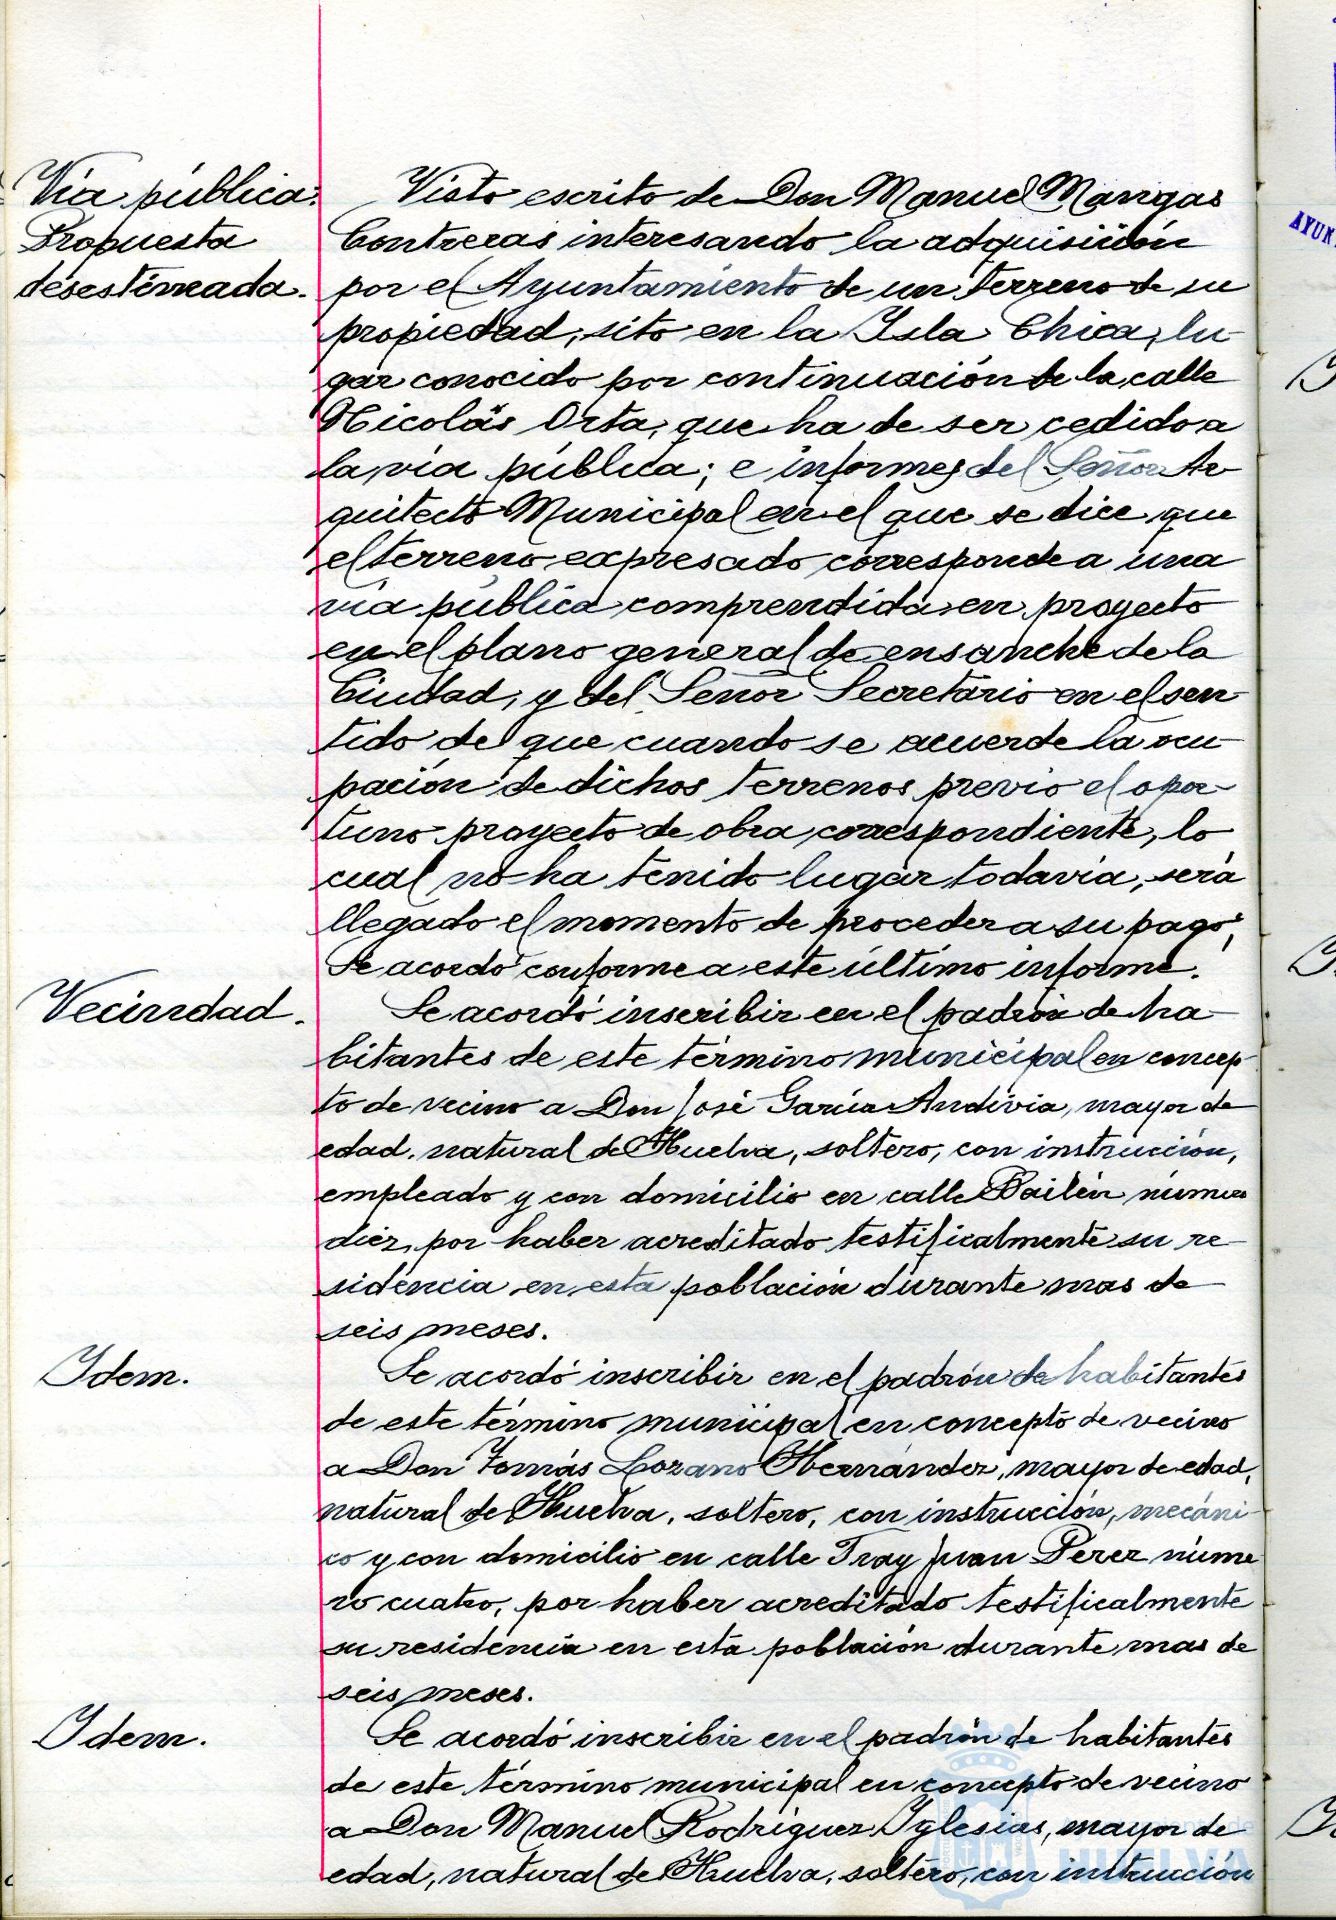 Vía pública.
Propuesta
desestimada.
Visto escrito de Don Manuel Mangas
Contreras interesando la adquisición
por el Ayuntamiento de un terreno de su
propiedad, sito en la Isla Chica, lu-
gar conocido por continuación de la calle
Nicolás Orta, que ha de ser cedido a
la vía pública; e informes del Señor Ar-
quitecto Municipal en el que se dice que
el terreno expresado corresponde a una
vía pública comprendida en proyecto
en el plano general de ensanche de la
Ciudad, y del Señor Secretario en el sen-
tido de que cuando se acuerde la ocu-
pación de dichos terrenos previo el opor-
tuno proyecto de obra correspondiente, lo
cual no ha tenido lugar todavía, será
llegado el momento de proceder a su pago,
Se acordó conforme a este último informe.
Vecindad.
Se acordó inscribir en el padrón de ha-
bitantes de este término municipal en concep-
to de vecino a Don José García Andivia, mayor de
edad, natural de Huelva, soltero, con instrucción,
empleado y con domicilio en calle Bailén número
diez, por haber acreditado testificalmente su re-
sidencia en esta población durante mas de
seis meses.
Idem.
Se acordó inscribir en el padrón de habitantes
de este término municipal en concepto de vecino
a Don Tomás Lozano Hernández, mayor de edad,
natural de Huelva, soltero, con instrucción, mecáni-
co y con domicilio en calle Fray Juan Pérez núme
ro cuatro, por haber acreditado testificalmente
su residencia en esta población durante mas de
seis meses.
Idem.
Se acordó inscribir en el padrón de habitantes
de este término municipal en concepto de vecino
a Don Manuel Rodríguez Iglesias, mayor de
edad, natural de Huelva, soltero, con instrucción
HUELVA
AYUN